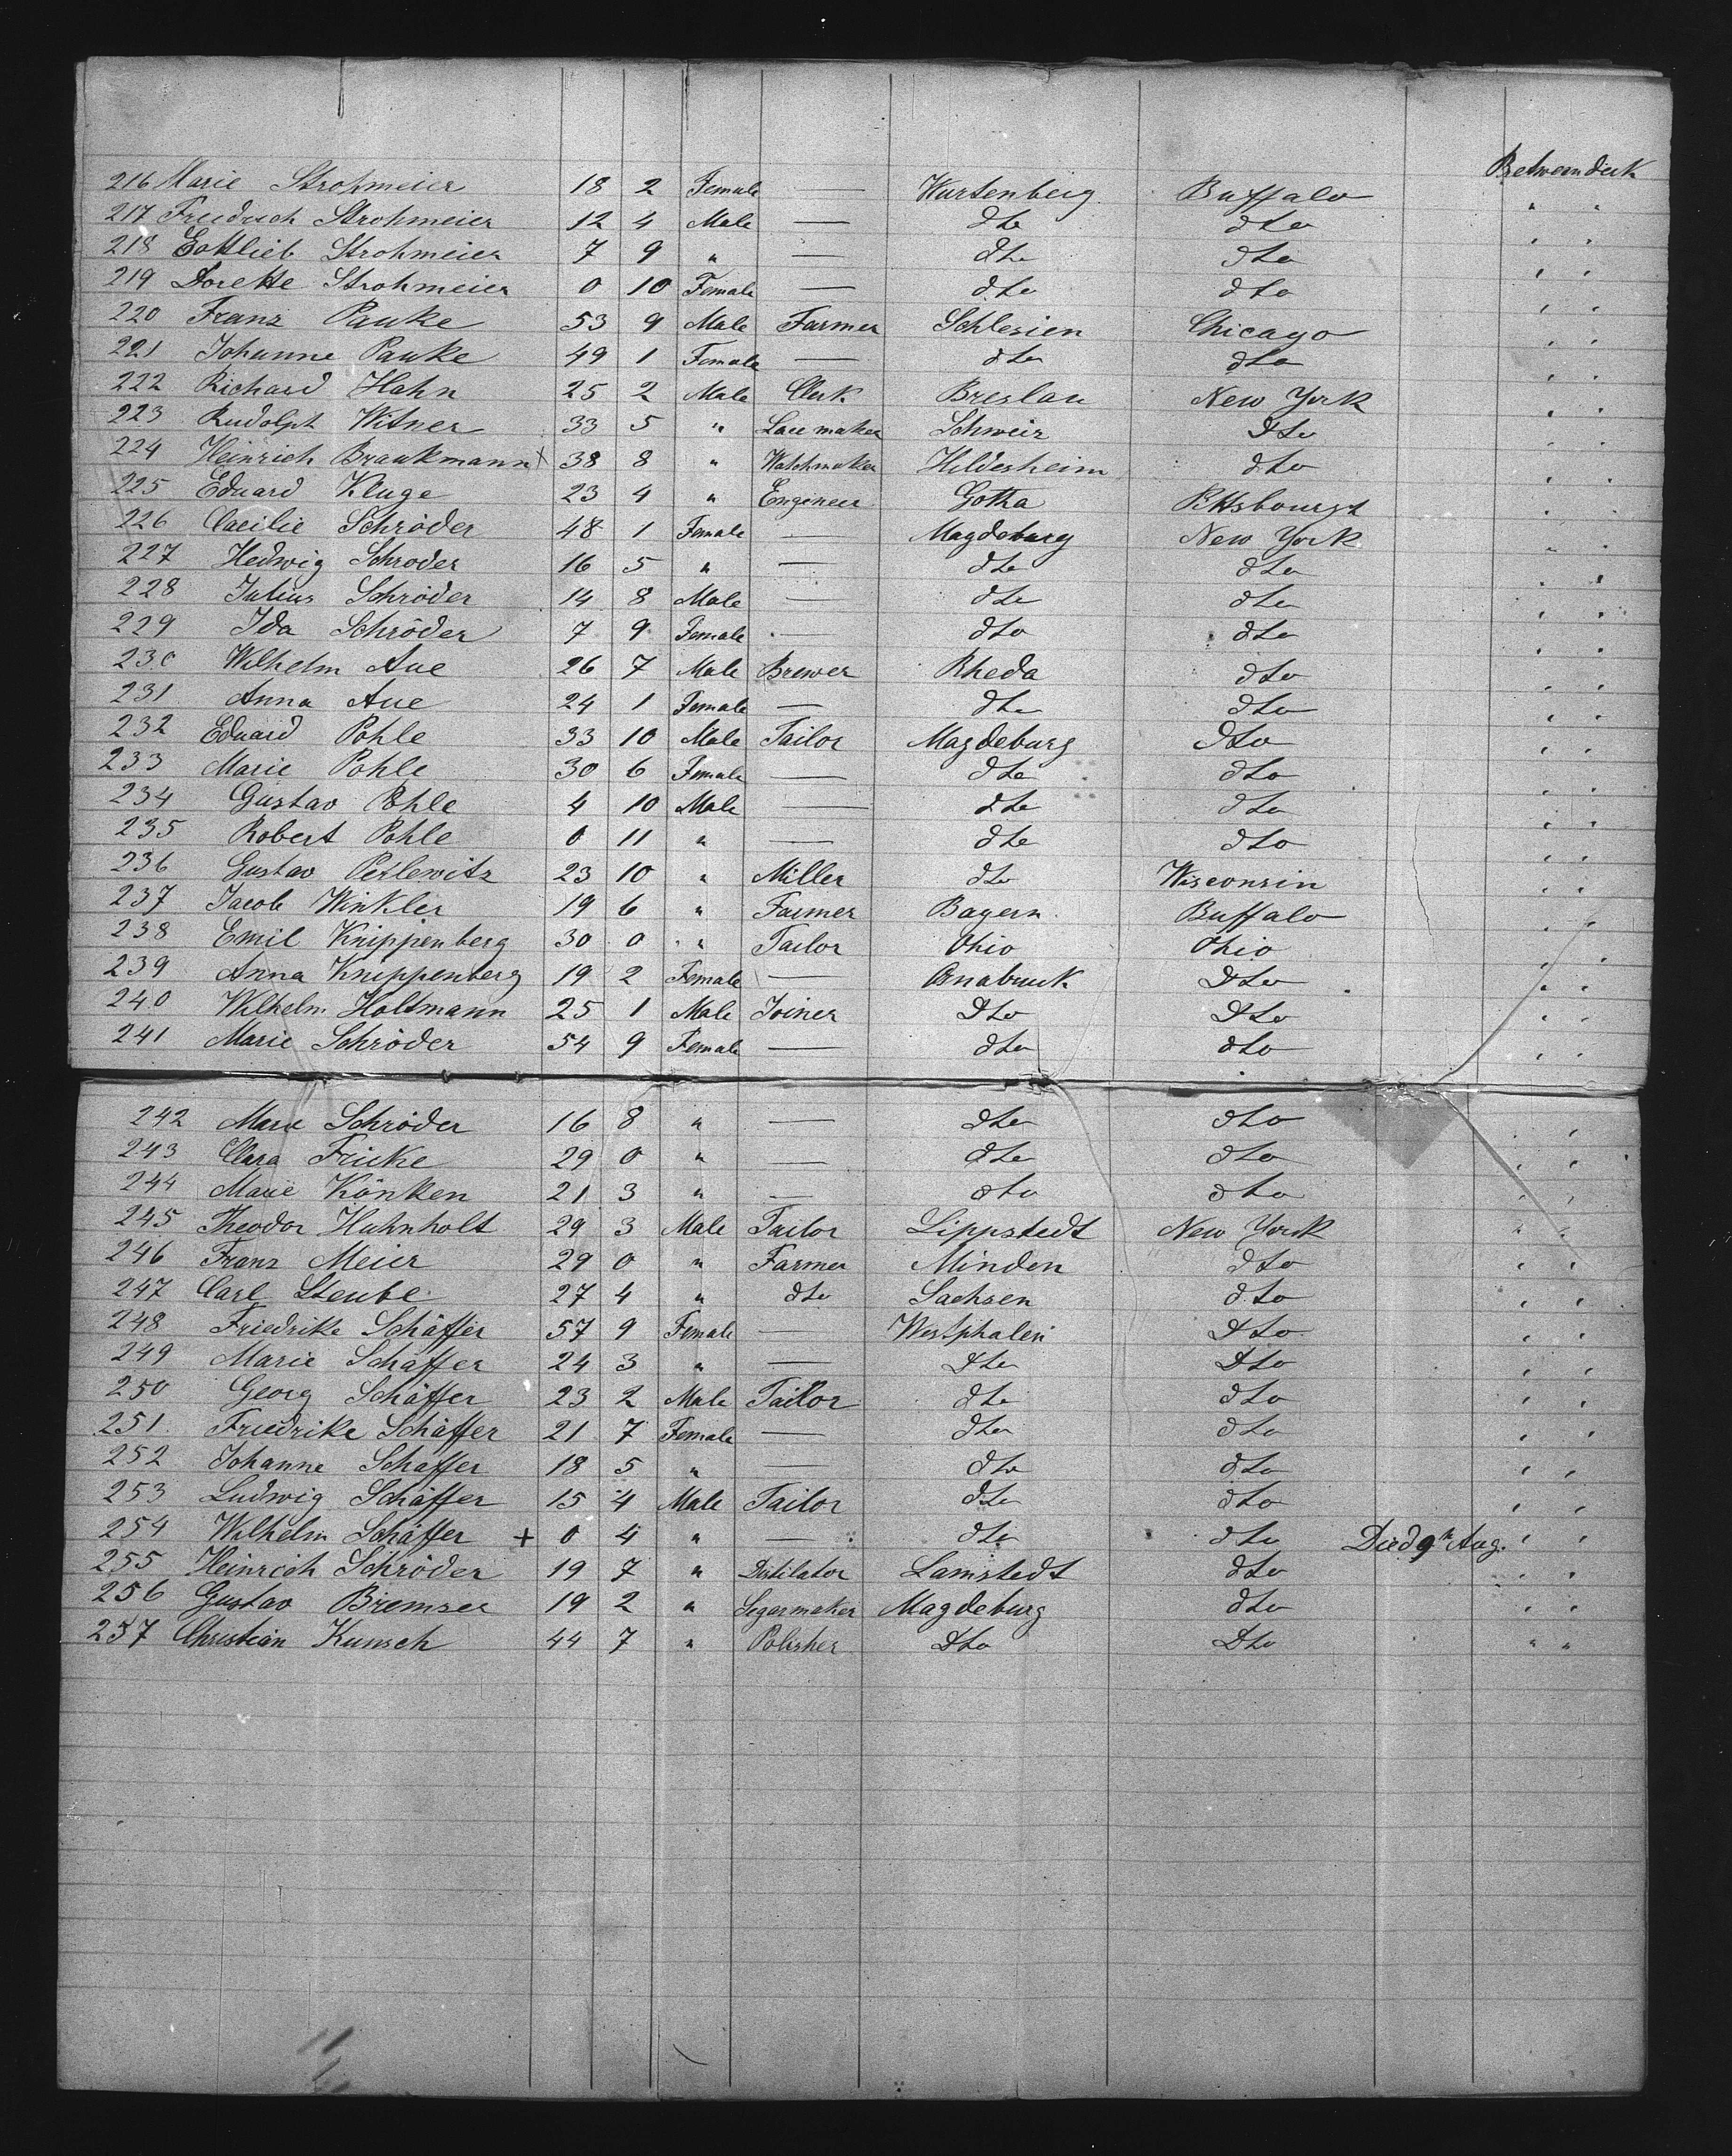 Betweendeck
216 Marie Strohmeier 18 2 Female — Wurtenberg Buffalo
217 Friedrich Strohmeier 12 4 Male — dto dto " "
218 Gottlieb Strohmeier 7 9 " — dto dto " "
219 Dorette Strohmeier 0 10 Female — dto dto " "
220 Franz Pauke 53 9 Male Farmer Schlesien Chicago " "
221 Johanne Pauke 49 1 Female — dto dto " "
222 Richard Hahn 25 2 Male Clerk Breslau New York " "
223 Rudolph Witner 33 5 " Lace maker Schweiz Dto " "
224 Heinrich Braukmann x 38 8 " Watchmaker Hildesheim dto " "
225 Eduard Kluge 23 4 " Engineer Gotha Pittsbourgt " "
226 Caecilie Schröder 48 1 Female — Magdeburg New York " "
227 Hedwig Schroder 16 5 " — dto dto " "
228 Julius Schröder 14 8 Male — dto dto " "
229 Ida Schröder 7 9 Female — dto dto " "
230 Wilhelm Aue 26 7 Male Brewer Rheda dto " "
231 Anna Aue 24 1 Female — dto dto " "
232 Eduard Pohle 33 10 Male Tailor Magdeburg Dto " "
233 Marie Pohle 30 6 Female — dto dto " "
234 Gustav Pohle 4 10 Male — dto dto " "
235 Robert Pohle 0 11 " — dto dto " "
236 Gustav Perlewitz 23 10 " Miller dto Wisconsin " "
237 Jacob Winkler 19 6 " Farmer Bayern Buffalo " "
238 Emil Knippenberg 30 0 " Tailor Ohio Ohio " "
239 Anna Knippenberg 19 2 Female — Osnabruck Dto " "
240 Wilhelm Holtmann 25 1 Male Joiner Dto Dto " "
241 Marie Schröder 54 9 Female — dto dto " "
242 Marie Schröder 16 8 " — dto dto " "
243 Clara Fricke 29 0 " — dto dto " "
244 Marie Könken 21 3 " — dto dto " "
245 Theodor Huhnholt 29 3 Male Tailor Lippstedt New York " "
246 Franz Meier 29 0 " Farmer Minden dto " "
247 Carl Steube 27 4 " dto Sachsen dto " "
248 Friedrike Schäffer 57 9 Female — Westphalen Dto " "
249 Marie Schäffer 24 3 " — Dto Dto " "
250 Georg Schäffer 23 2 Male Tailor dto dto " "
251 Friedrike Schäffer 21 7 Female — dto dto " "
252 Johanne Schäffer 18 5 " — dto dto " "
253 Ludwig Schäffer 15 4 Male Tailor dto dto " "
254 Wilhelm Schäffer + 0 4 " — dto dto Died 9th Aug. " "
255 Heinrich Schröder 19 7 " Distilator Lamstedt dto " "
256 Gustav Bremser 19 2 " Segarmaker Magdeburg dto " "
257 Christian Kunsch 44 7 " Polisher Dto Dto " "